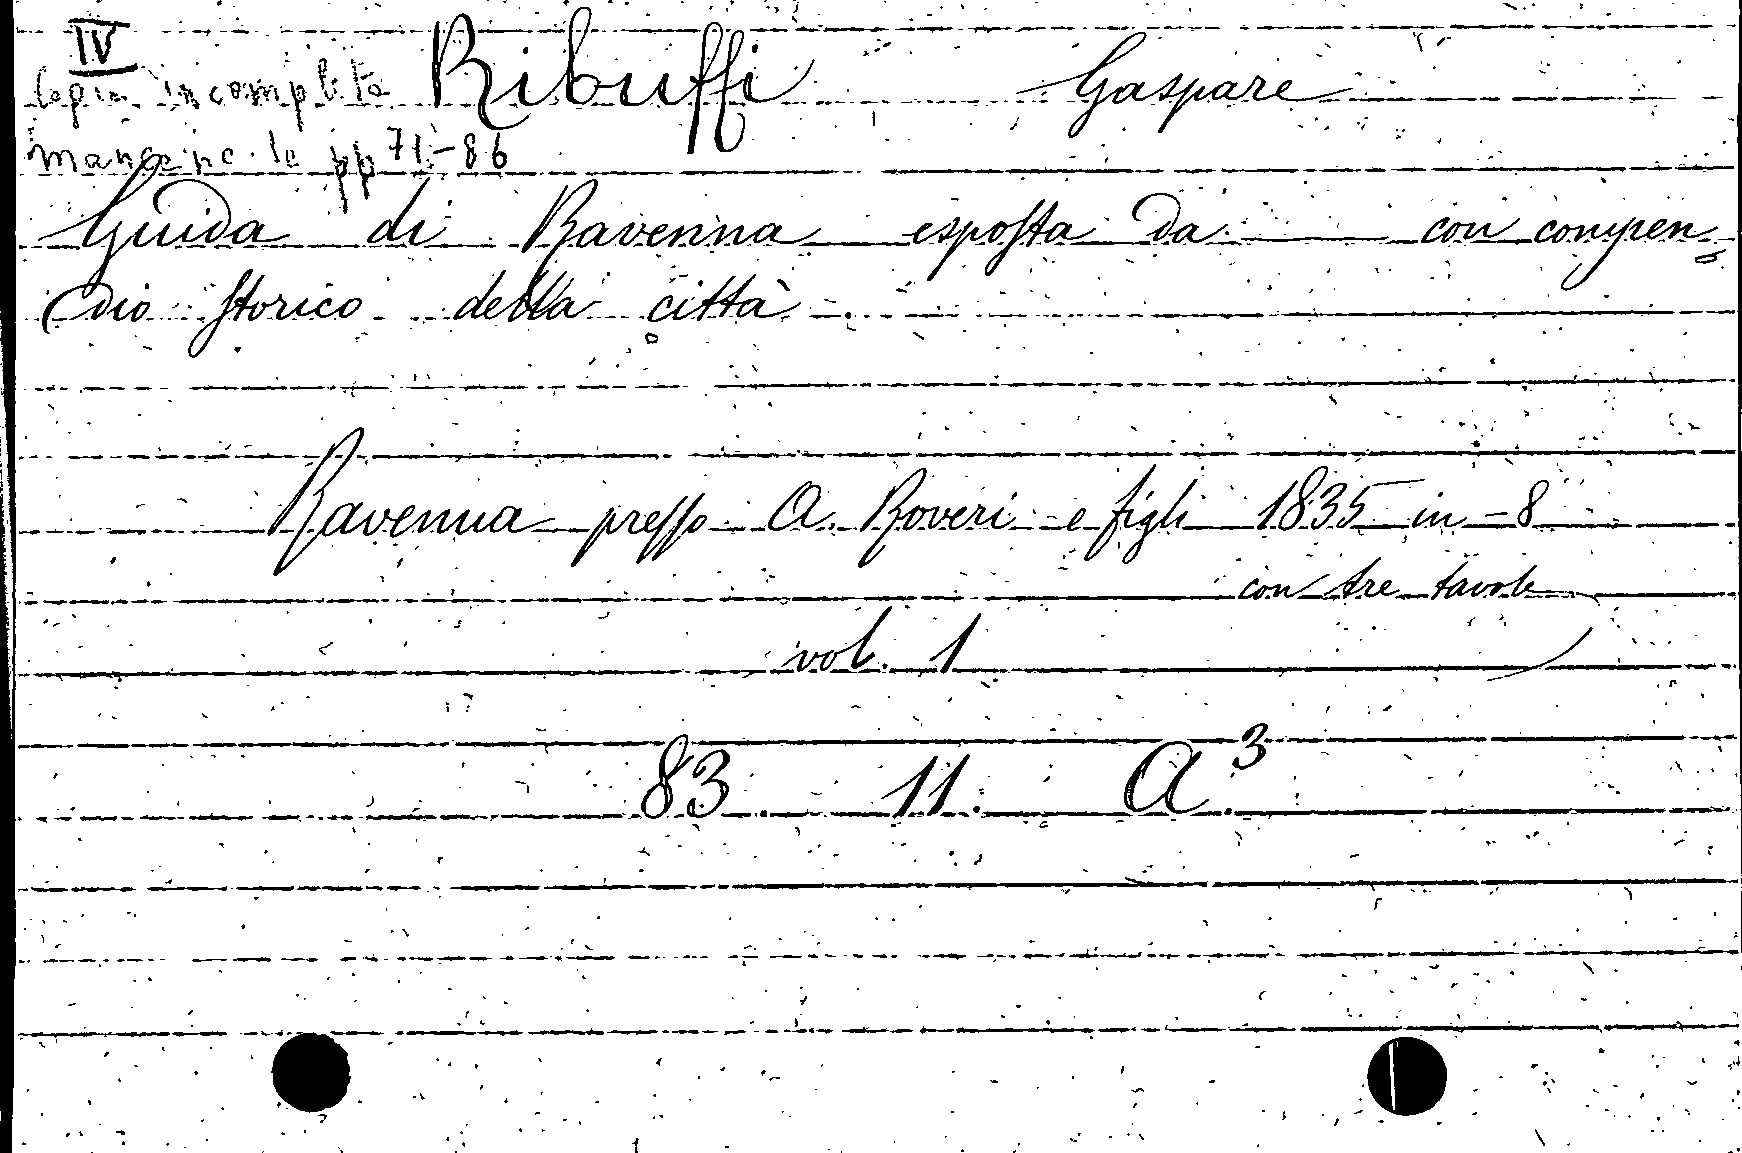 IV
Copia incompleta Ribuffi Gaspare
mancano le pp 71-86
Guida di Ravenna esposta da —— con compen-
dio storico della città.
Ravenna presso A. Roveri e figli 1835 in-8
con tre tavole
vol. 1
83. 11. A.3